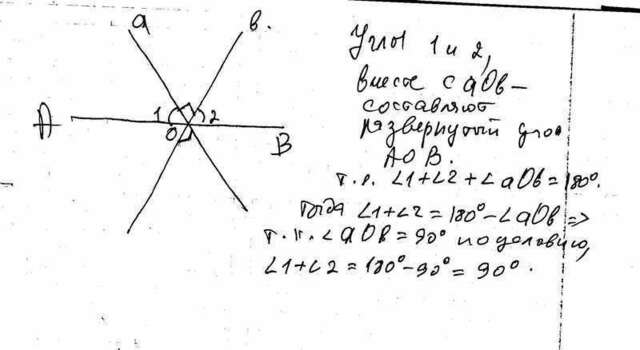 a
в.
1
2
А
О
В
Углы 1 и 2,
вместе с aOb –
составляют
развернутый угол
АОВ.
т.е. ∠1+∠2+∠aOb=180°.
Тогда ∠1+∠2=180°-∠aOb=>
т.к. ∠aOb=90° по условию,
∠1+∠2=180°-90°=90°.